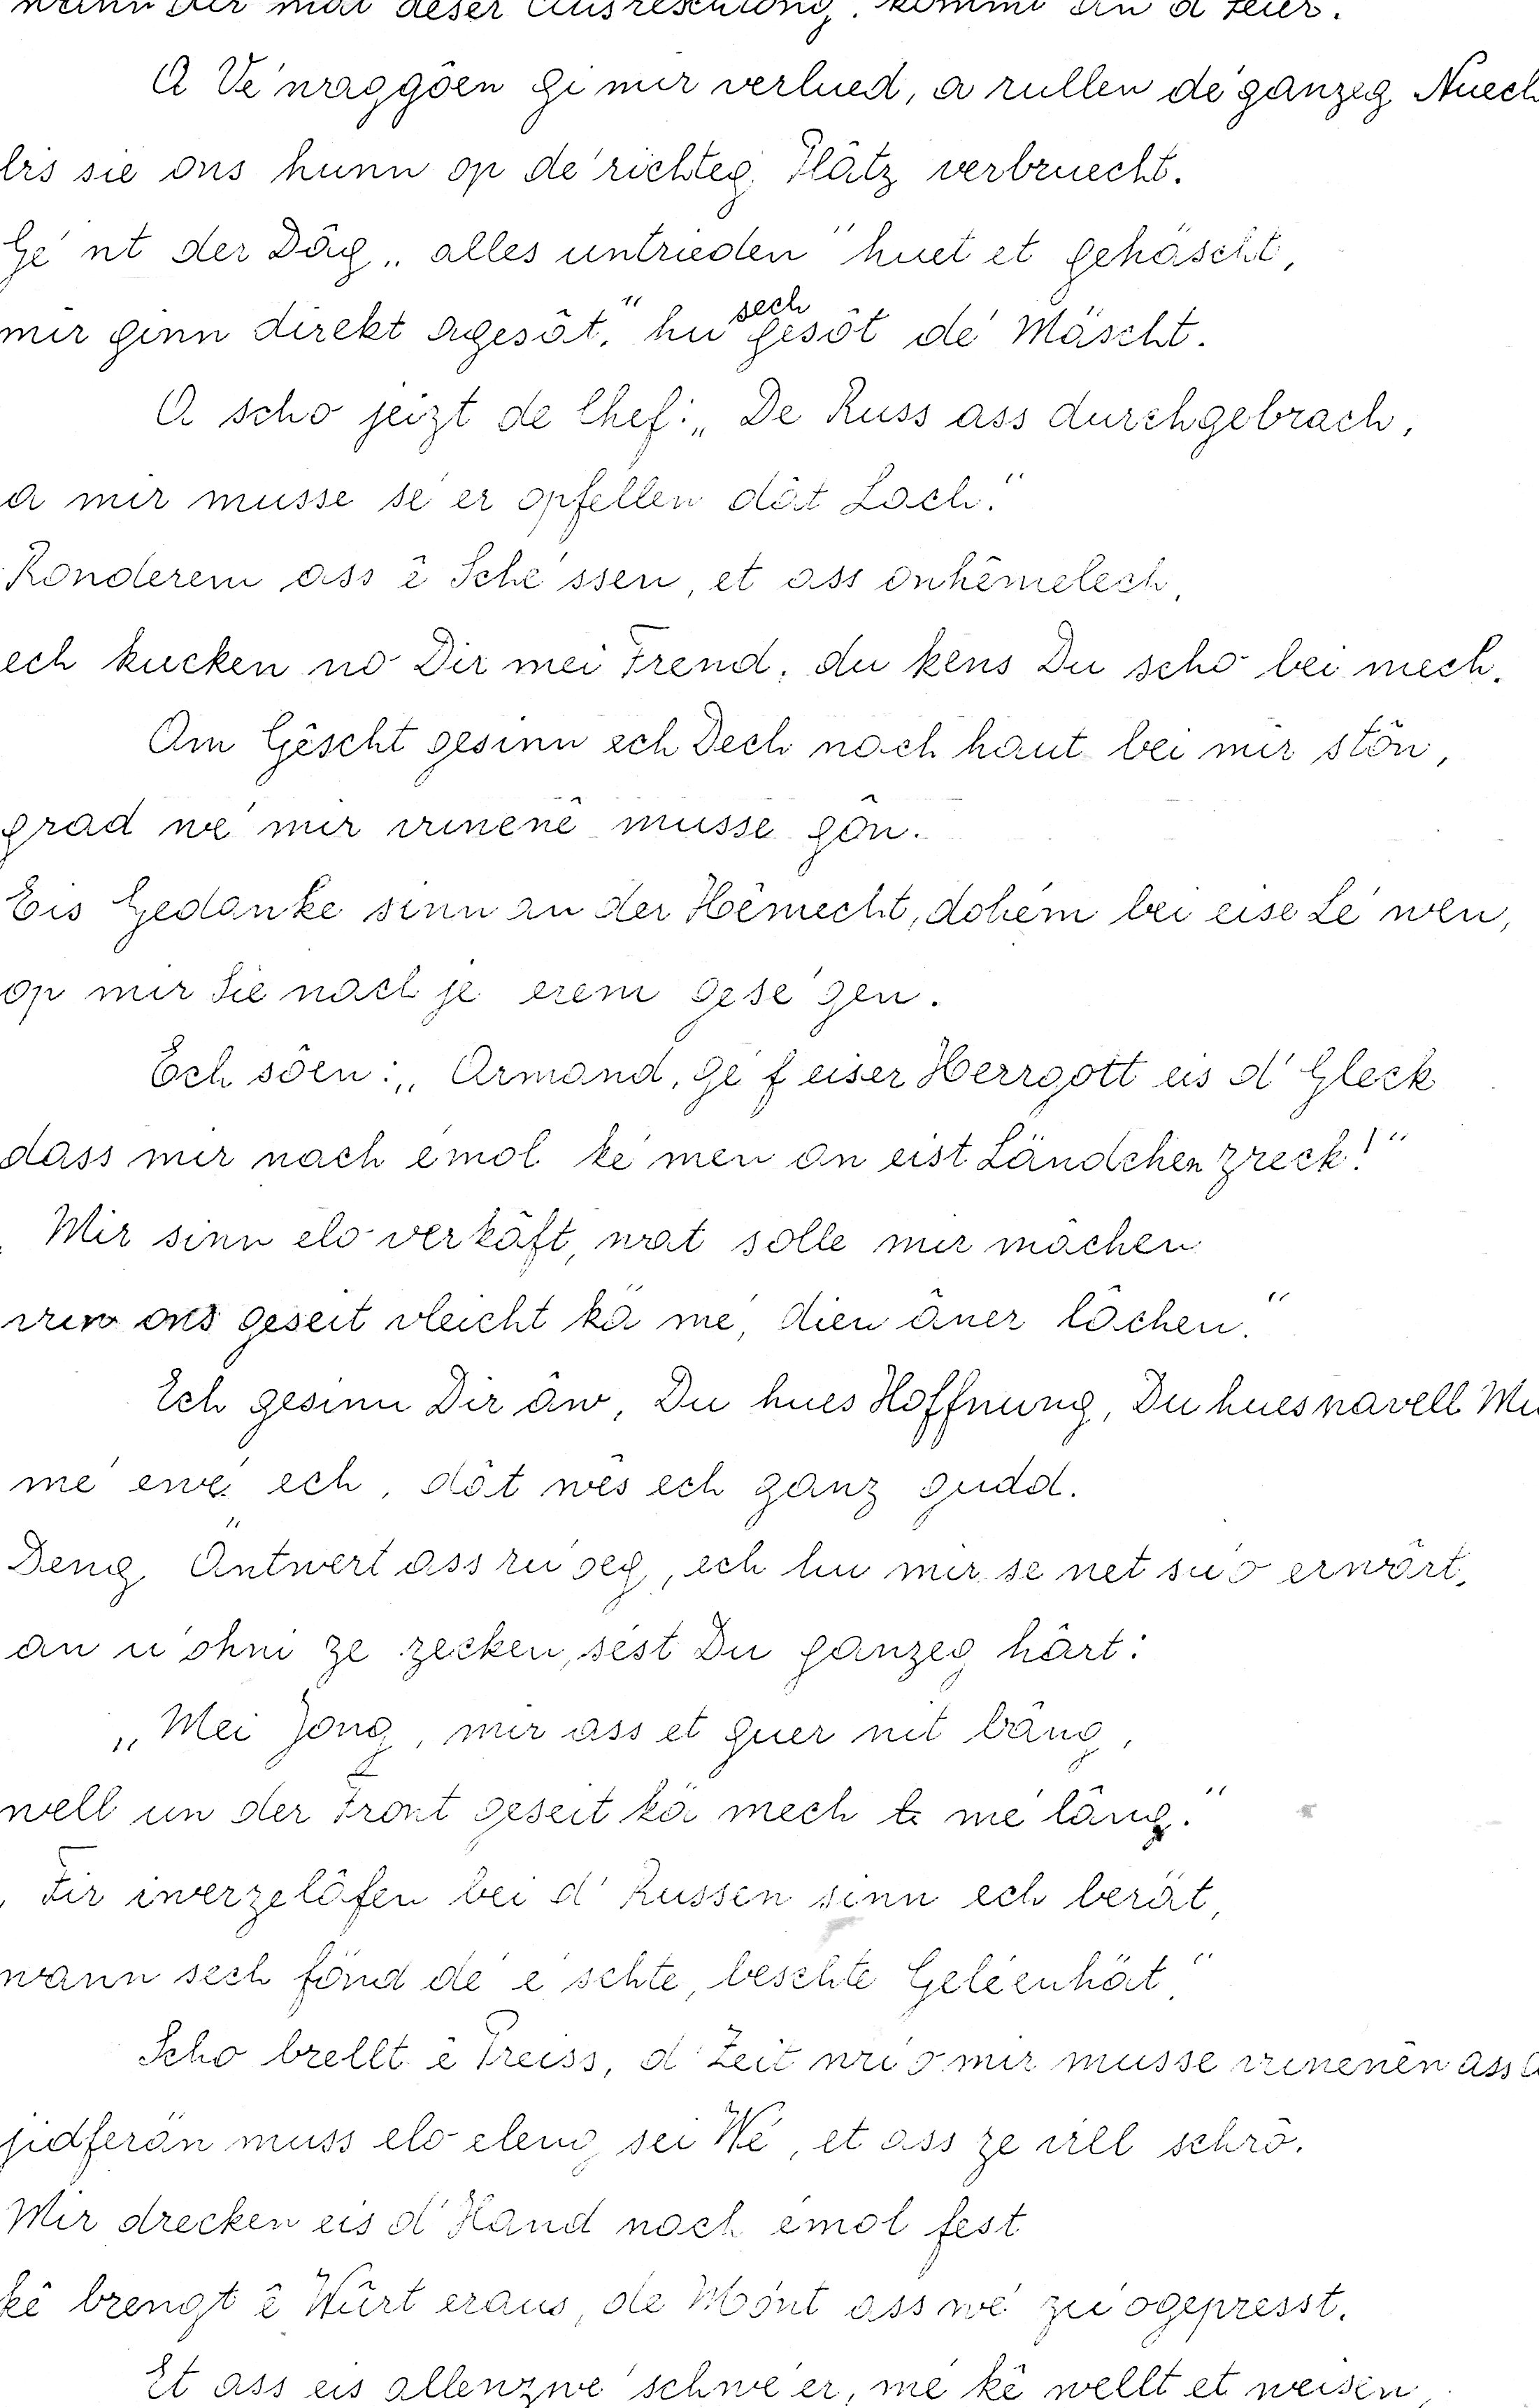 wann Dir mat deser Ausreschtong kommt an d'Feier.
A Ve'wággöen gi mir verlued, a rullen de' ganzeg Nuech
bis sie ons hunn op de' richteg Plâtz verbruecht.
Ge'nt der Dâg „alles untrieden" huet et gehäscht,
mir ginn direkt agesât," hu sech gesôt de' Mäscht.
A scho jeizt de Chef: „De Russ ass durchgebrach,
a mir musse se'er opfëllen dât Loch."
Ronderem ass ê Sche'ssen, et ass onhêmelech,
ech kucken no Dir mei Frend, du kens Du scho bei mech.
Am Gêscht gesinn ech Dech nach haut bei mir stôn,
grad we' mir virenê musse gôn.
Eis Gedanke sinn an der Hêmecht, dohêm bei eise Le'wen,
op mir Sie nach je erem gese'gen.
Ech sôen: „Armand, ge'f eiser Herrgott eis d'Gleck
dass mir nach emol ke'men an eist Ländchen zreck!"
Mir sinn elo verkâft, wat solle mir mâchen
vun ons geseit vleicht kä me', dien äner lâchen."
Ech gesinn Dir âw, Du hues Hoffnung, Du hues navell Mu
me' ewe' ech, dât wês ech ganz gudd.
Deng Äntwert ass ru'eg, ech hu mir se net su'o erwârt,
an u'ohni ze zecken, sêst Du ganzeg hârt:
„Mei Jong, mir ass et guer nit bâng,
well un der Front geseit kä mech te me' lâng."
Fir iwerzelâfen bei d'Russen sinn ech berät,
wann sech fönd de' e'schte, beschte Geleenhät."
Scho brellt ê Preiss, d'Zeit wu'o mir musse virunenên ass
jidferän muss elo eleng sei We', et ass ze vill schro.
Mir drecken eis d'Hand nach emol fest
kê brengt ê Wûrt eraus, de Mônt ass we' zu'ogepresst.
Et ass eis allenzwe' schwe'er, me' kê wellt et weisen,